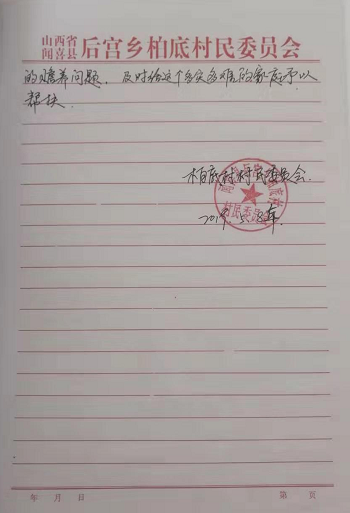 山西省
闻喜县
后宫乡柏底村民委员会
的赡养问题，及时给这个多灾多难的家庭予以
帮扶。
柏底村村民委员会.
村民委员会
年 月 日
第 页